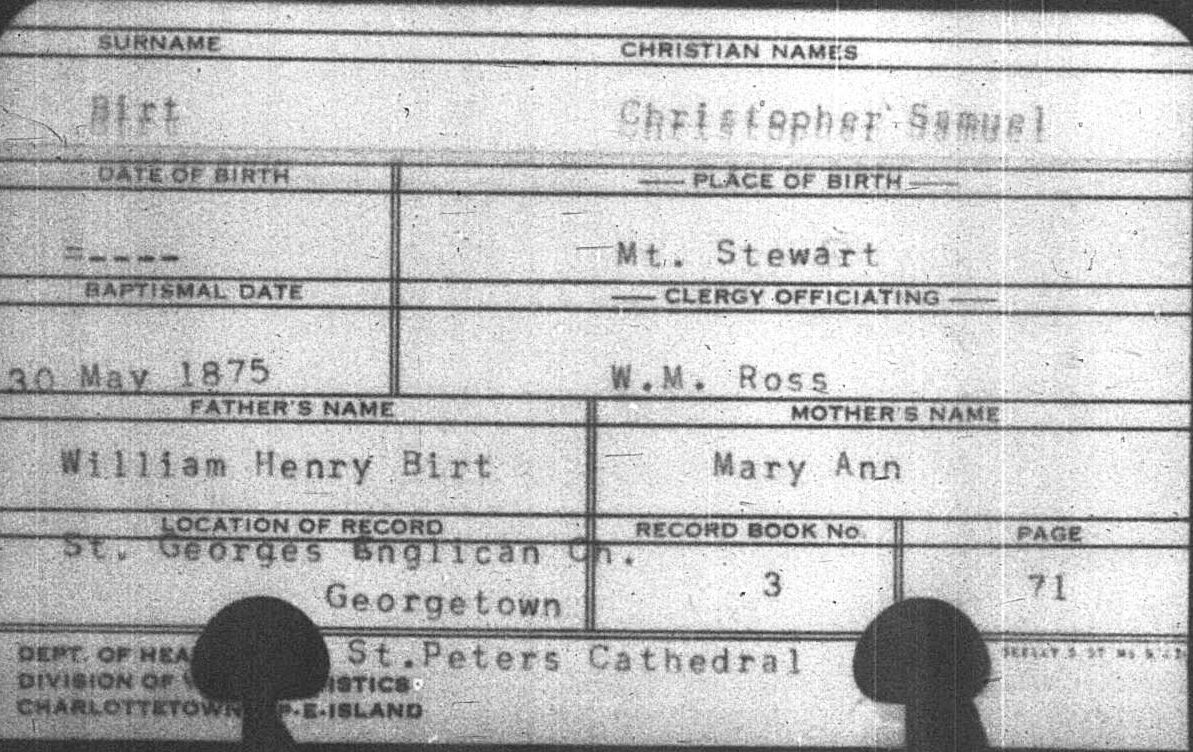 SURNAME CHRISTIAN NAMES
Birt Christopher Samuel
DATE OF BIRTH PLACE OF BIRTH
=---- Mt. Stewart
BAPTISMAL DATE CLERGY OFFICIATING
30 May 1875 W.M. Ross
FATHER'S NAME MOTHER'S NAME
William Henry Birt Mary Ann
LOCATION OF RECORD RECORD BOOK No. PAGE
St. Georges Englican Ch.
Georgetown 3 71
DEPT. OF St.Peters Cathedral
DIVISION OF
CHARLOTTETOWN P.E.ISLAND